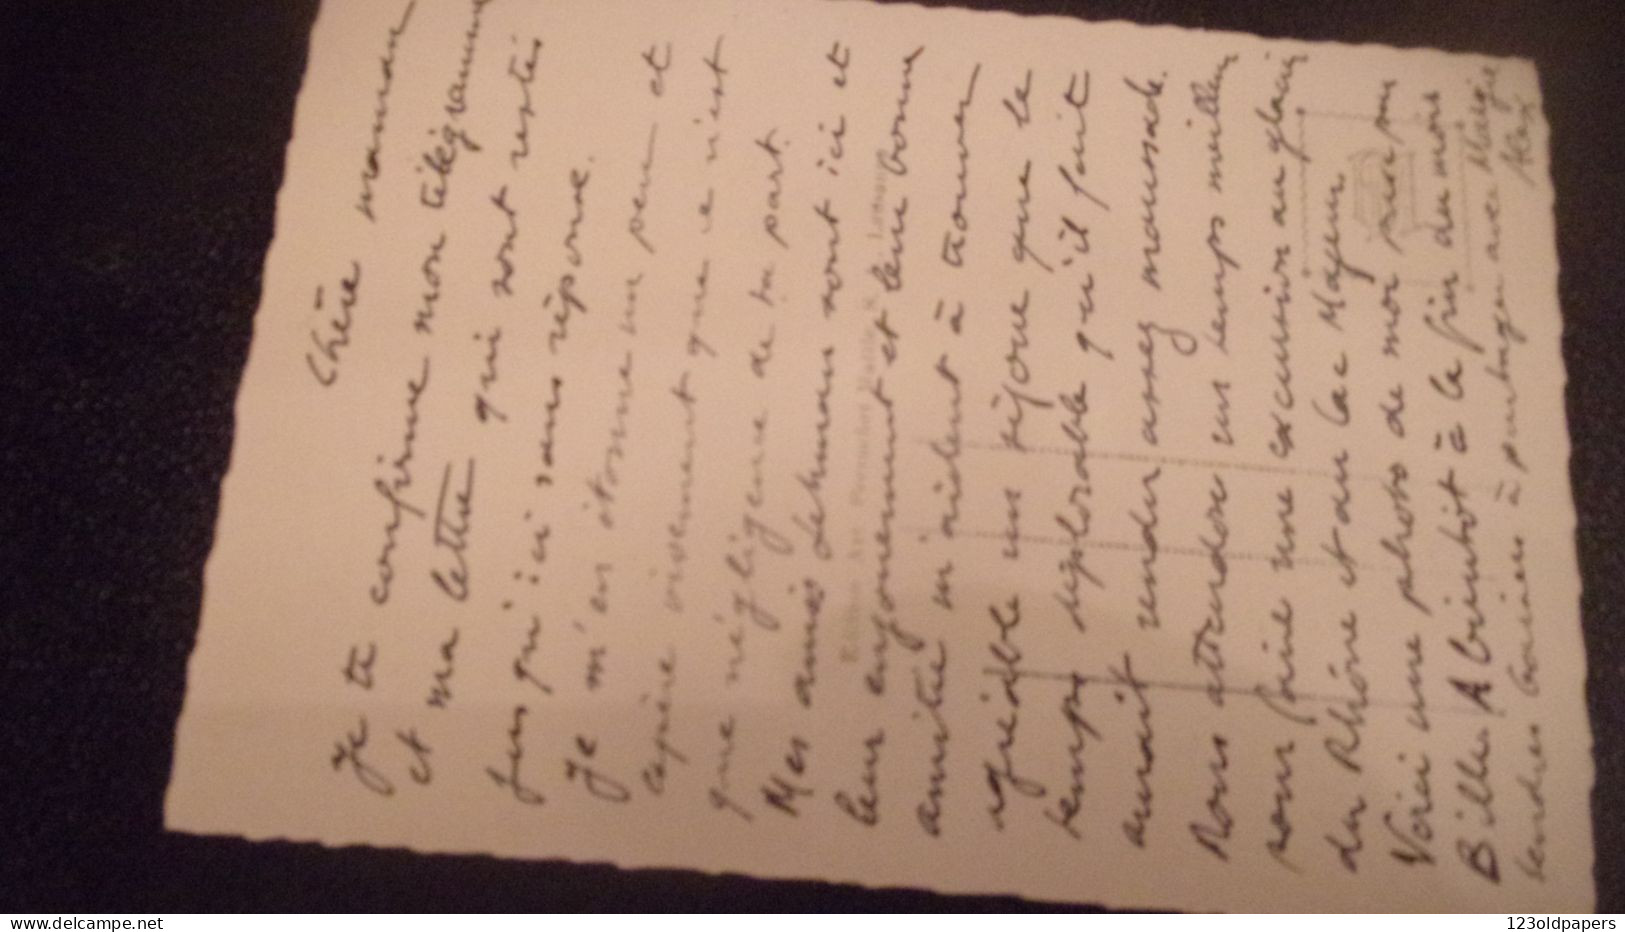 Chère maman
Je te confirme mon télégramme
et ma lettre qui sont restés
jusqu'ici sans réponse.
Je m'en étonne un peu et
espère vivement que ce n'est
que négligence de ta part.
Mes amis Lehmann sont ici et
leur enjouement et leur bonne
amitié m'aident à trouver
agréable un séjour que le
temps déplorable qu'il fait
aurait rendu assez maussade.
Nous attendons un temps meilleur
pour faire une excursion au glacier
du Rhône et au lac Majeur.
Voici une photo de moi prise par
Bille. A bientôt à la fin du mois
tendres baisers à partager avec
Edition Art. Perrochet Matile Lausanne
123oldpapers